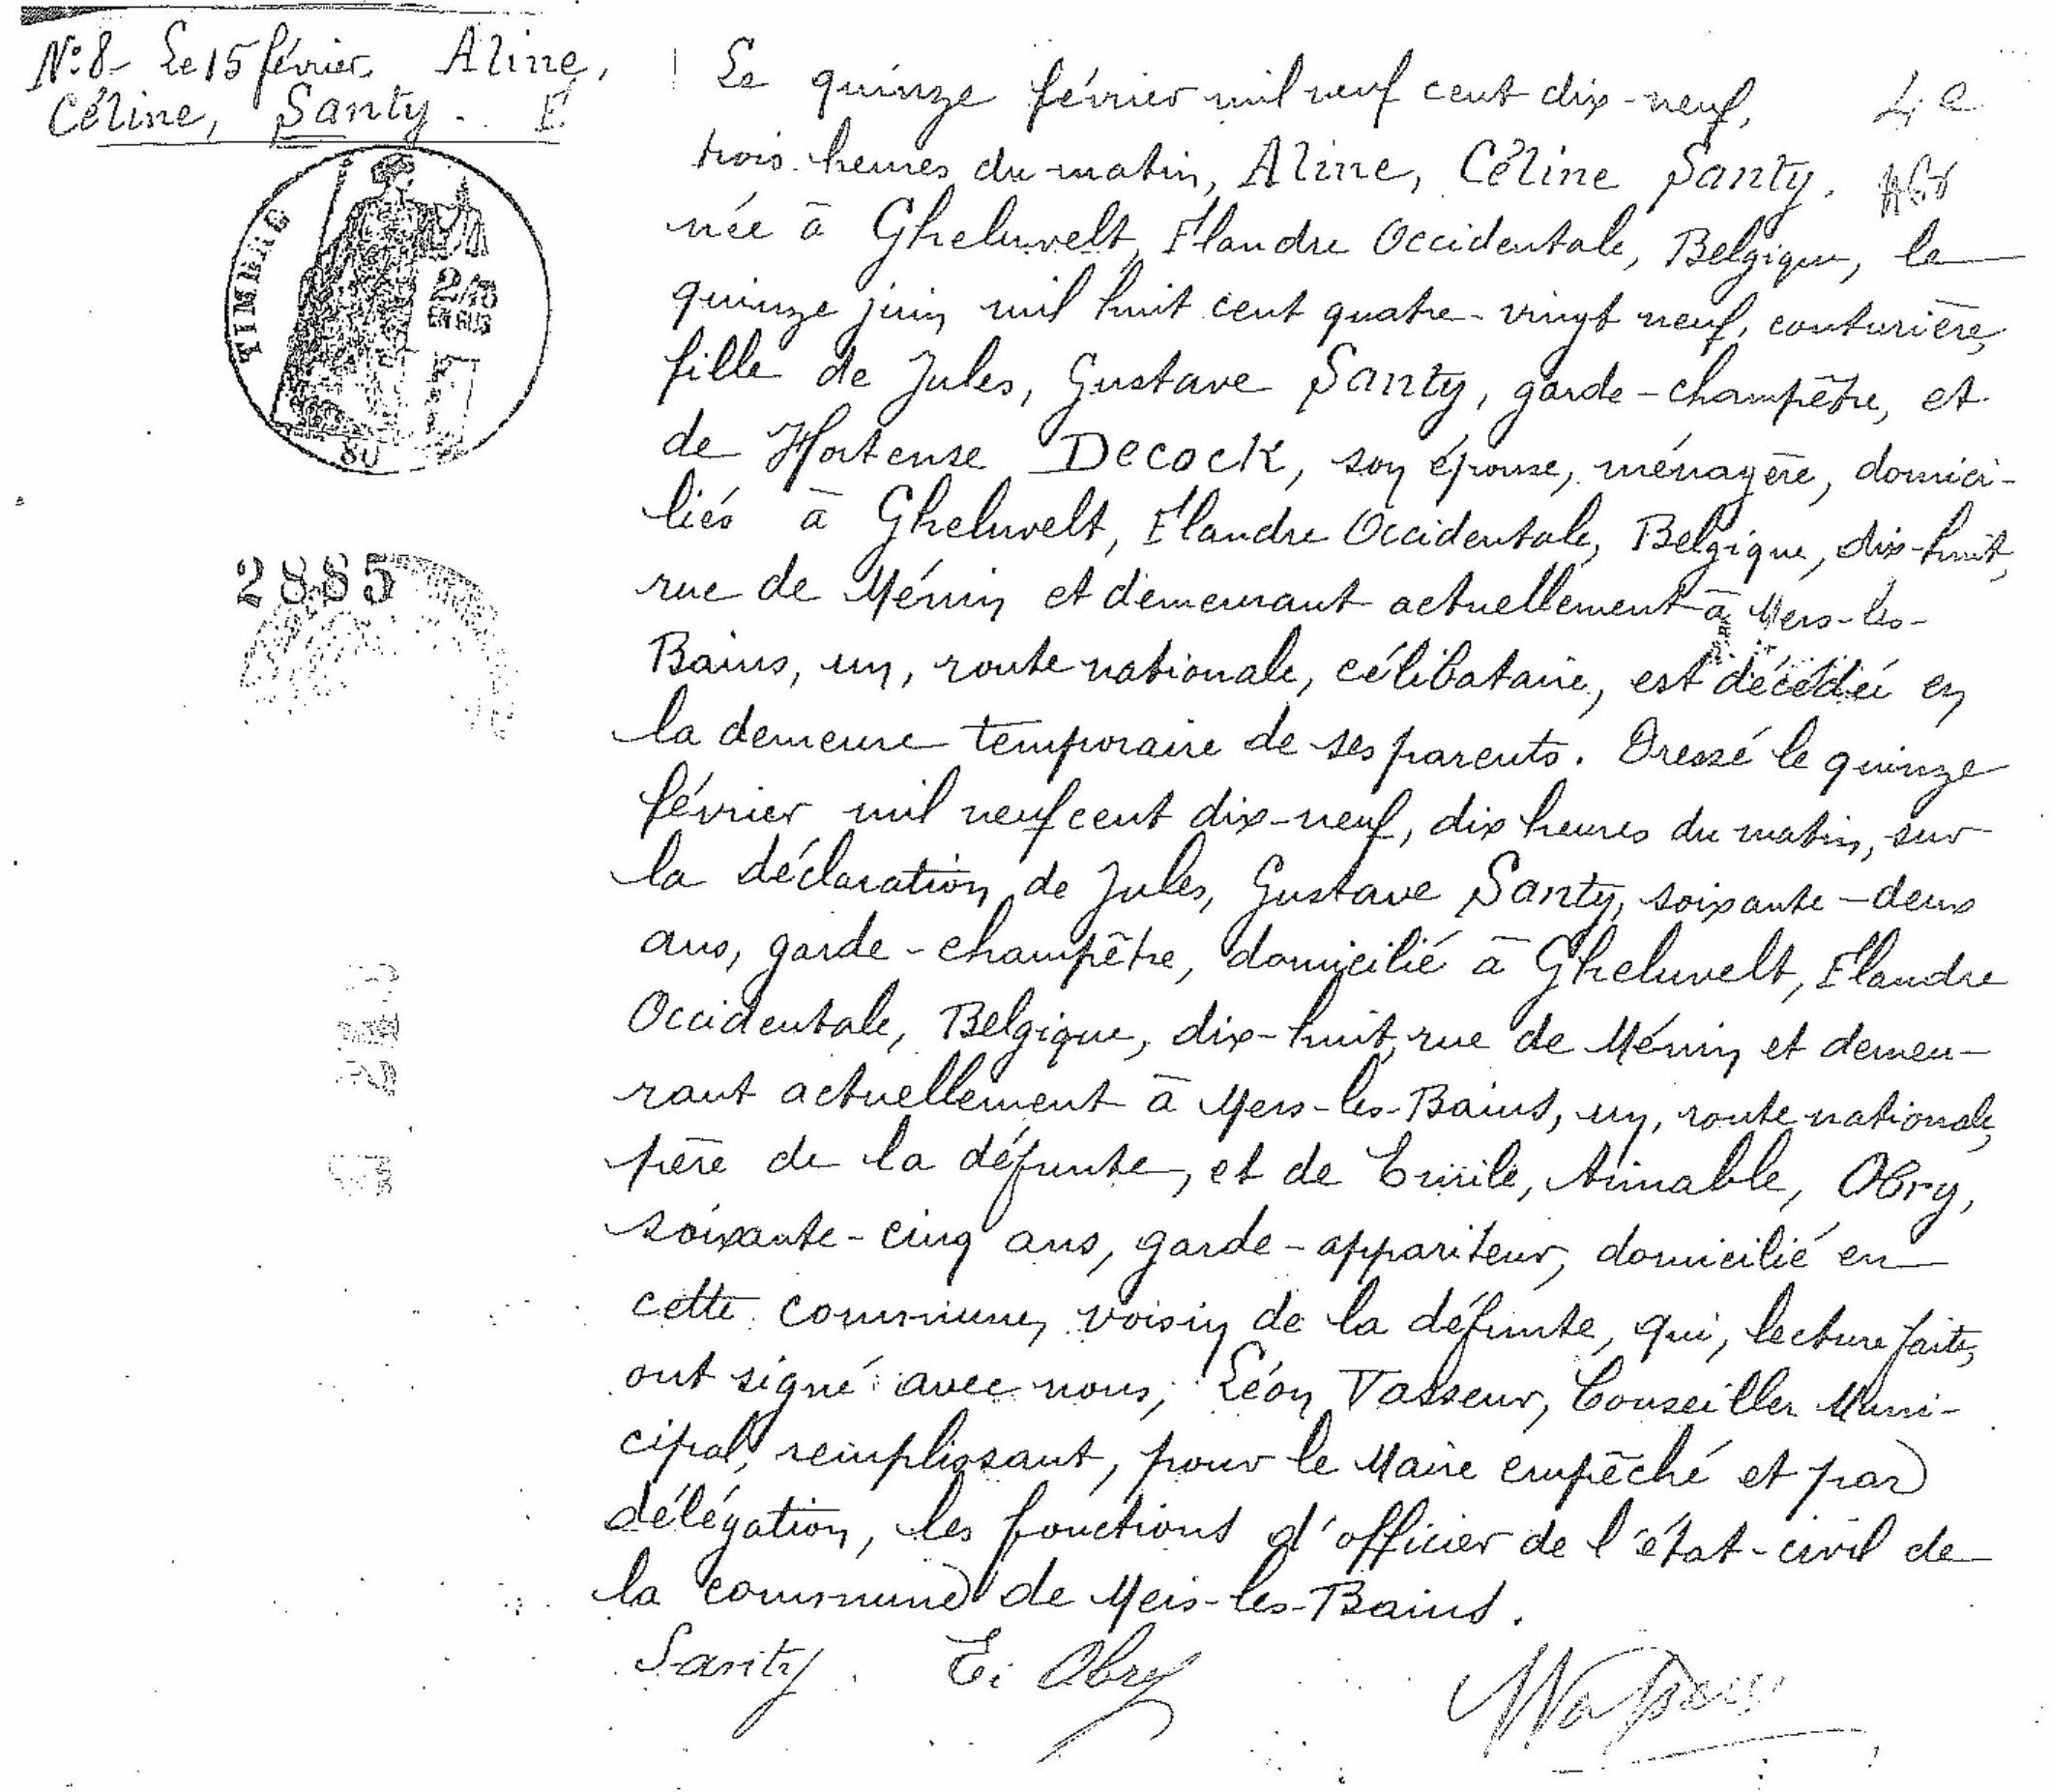 N° 8 Le 15 février. Aline,
Céline, Santy.
TIMBRE
2/10
EN SUS
80
2885
Le quinze février mil neuf cent dix-neuf,
trois heures du matin, Aline, Céline Santy.
née à Gheluvelt, Flandre Occidentale, Belgique, le
quinze juin mil huit cent quatre-vingt neuf, couturière,
fille de Jules, Gustave Santy, garde-champêtre, et
de Hortense Decock, son épouse, ménagère, domici-
liés à Gheluvelt, Flandre Occidentale, Belgique, dix-huit,
rue de Ménin et demeurant actuellement à Mers-les-
Bains, un, route nationale, célibataire, est décédée en
la demeure temporaire de ses parents. Dressé le quinze
février mil neuf cent dix-neuf, dix heures du matin, sur
la déclaration de Jules, Gustave Santy, soixante-deux
ans, garde-champêtre, domicilié à Gheluvelt, Flandre
Occidentale, Belgique, dix-huit, rue de Ménin et demeu-
rant actuellement à Mers-les-Bains, un, route nationale,
père de la défunte, et de Emile, Aimable, Obry,
soixante-cinq ans, garde-appariteur, domicilié en
cette commune, voisin de la défunte, qui, lecture faite,
ont signé avec nous, Léon Vasseur, Conseiller Muni-
cipal, remplissant, pour le Maire empêché et par
délégation, les fonctions d'officier de l'état-civil de
la commune de Mers-les-Bains.
Santy. E. Obry